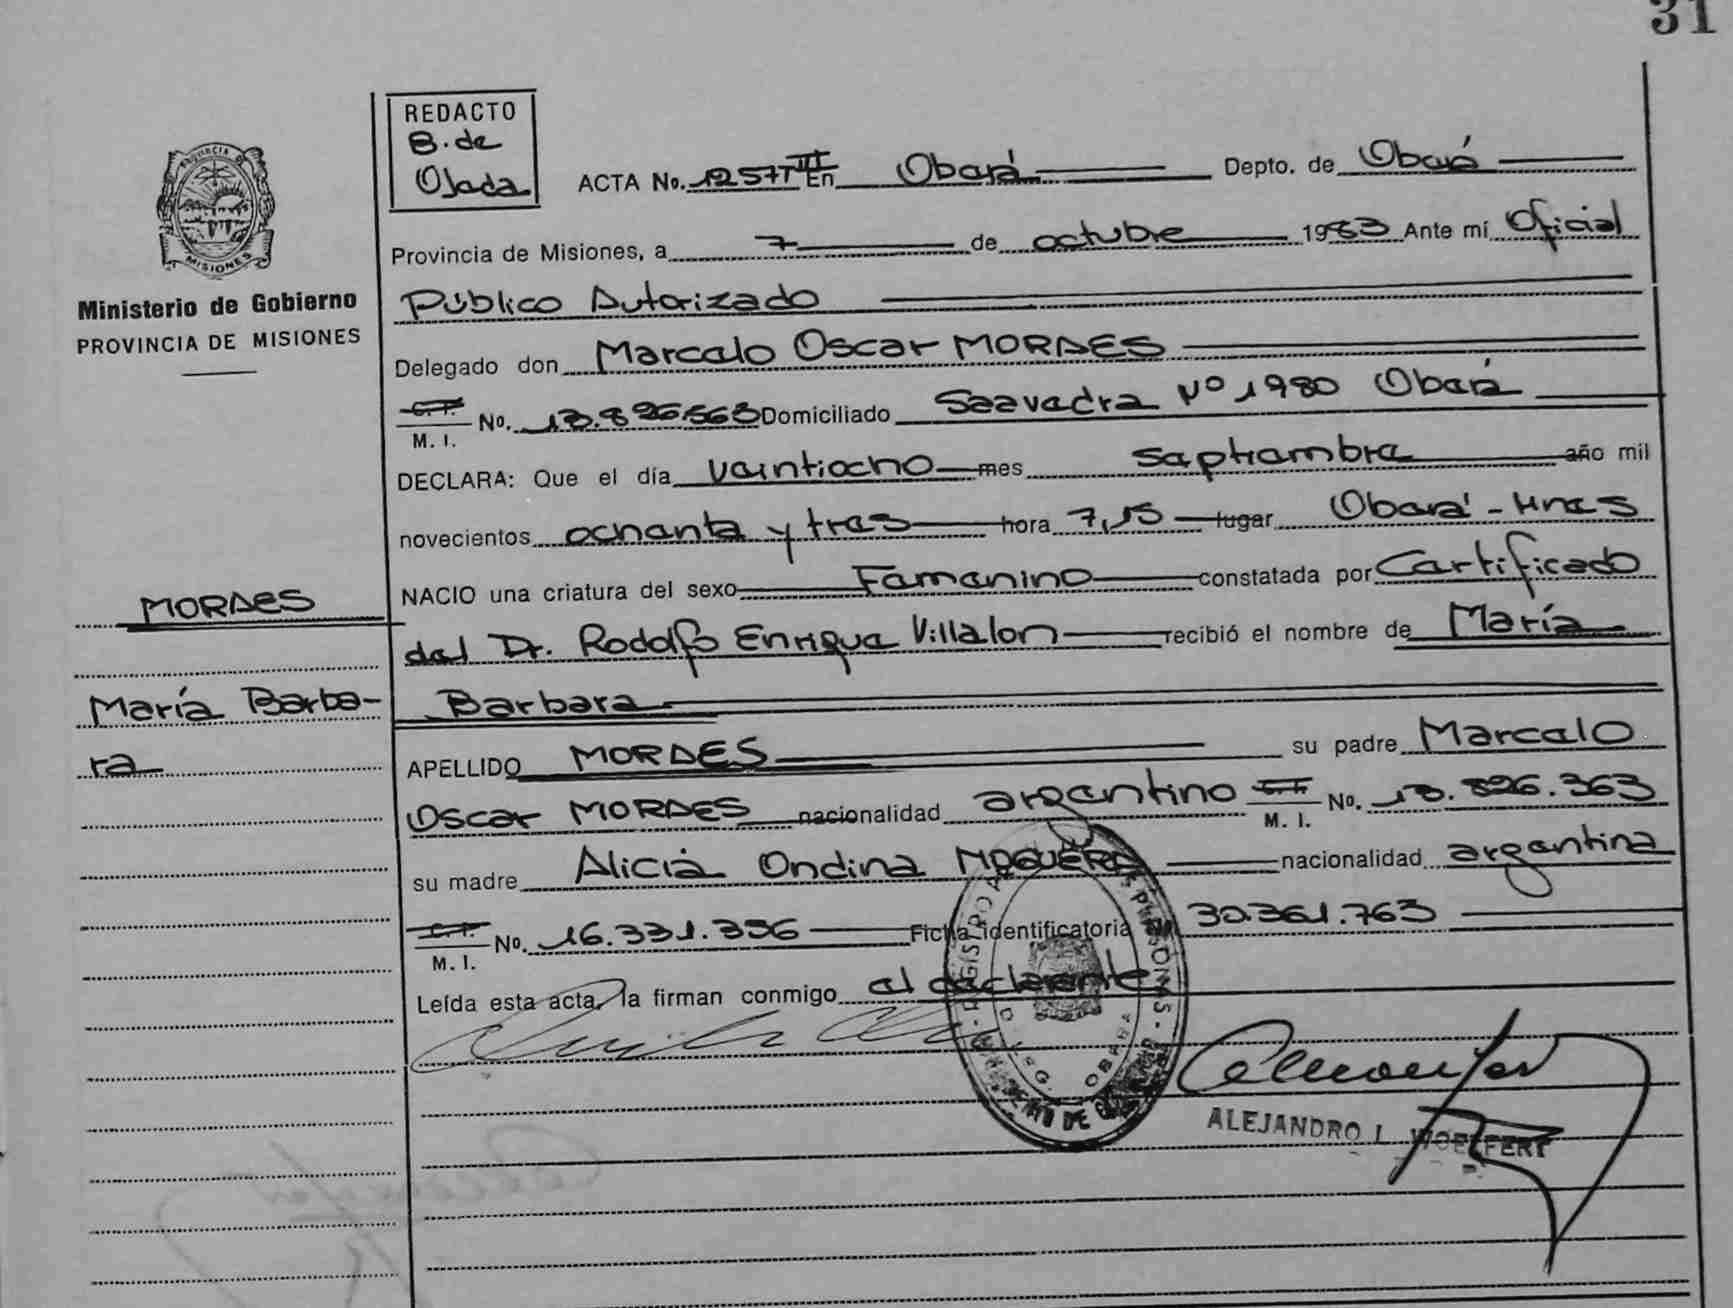 31
REDACTO
B. de
Ojeda
ACTA No. 1257 TºIII En Oberá Depto. de Oberá
Provincia de Misiones, a 7 de octubre 1983 Ante mí Oficial
Ministerio de Gobierno
PROVINCIA DE MISIONES
Público Autorizado
Delegado don Marcelo Oscar MORAES
C. I. M. I. No. Domiciliado Saavedra Nº 1980 Oberá
DECLARA: Que el día veintiocho mes septiembre año mil
novecientos ochenta y tres hora 7,15 lugar Oberá - Mnes
NACIO una criatura del sexo Femenino constatada por Certificado
MORAES
del Dr. Rodolfo Enrique Villalon recibió el nombre de María
María Barba-
Barbara
ra
APELLIDO MORAES su padre Marcelo
Oscar MORAES nacionalidad argentino C. I. M. I. No. 13.826.363
su madre Alicia Ondina nacionalidad argentina
C. I. M. I. No. 16.331.336 Ficha identificatoria 30.361.763
Leída esta acta, la firman conmigo el declarante
ALEJANDRO L. WOELFERT